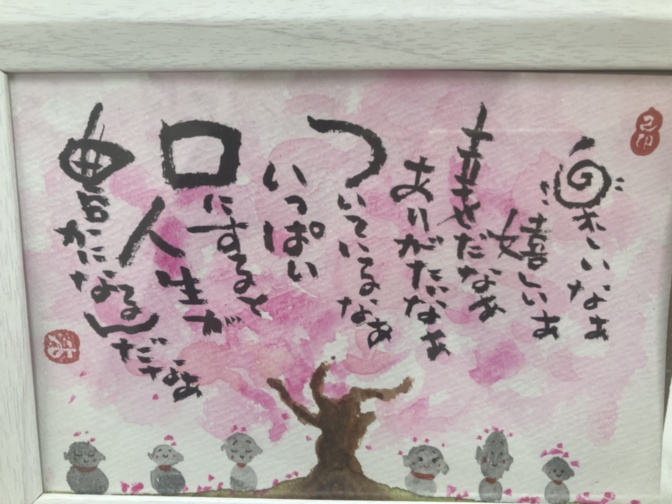 楽しいなぁ
嬉しいなぁ
幸せだなぁ
ありがたいなぁ
ついているなぁ
いっぱい
口にすると
人生が
豊かになるんだなぁ